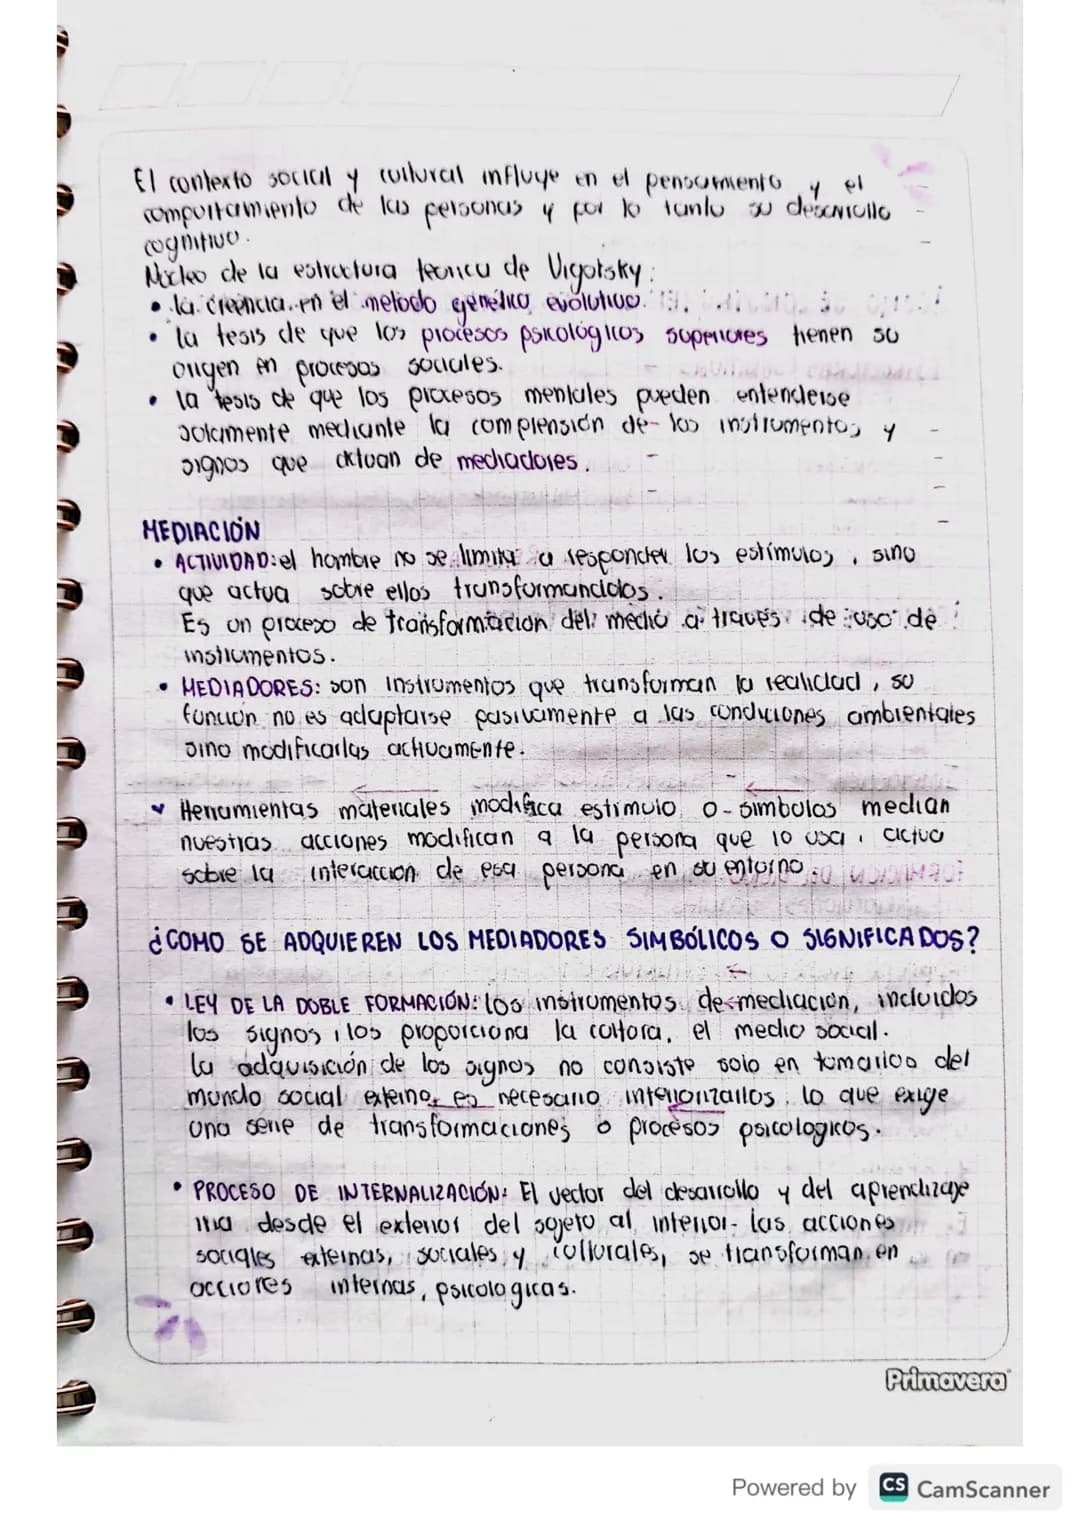 El contexto social y cultural influye en el pensamiento y el
comportamiento de las personas y por lo tanto su desarrollo
cognitivo.
Núcleo de la estructura teórica de Vigotsky:
• la creencia en el metodo genético evolutivo.
• la tesis de que los procesos psicológicos superiores tienen su
origen en procesos sociales.
• la tesis de que los procesos mentales pueden entenderse
solamente mediante la comprensión de los instrumentos y
signos que actuan de mediadores.
MEDIACIÓN
• ACTIVIDAD: el hombre no se limita a responder los estímulos, sino
que actua sobre ellos transformandolos.
Es un proceso de transformacion del medio a través de uso de
instrumentos.
• MEDIADORES: son instrumentos que transforman la realidad, su
función no es adaptarse pasivamente a las condiciones ambientales
sino modificarlas activamente.
Herramientas materiales modifica estimulo o-simbolos median
nuestras acciones modifican a la persona que lo usa, actua
sobre la interaccion de esa persona en su entorno.
¿COMO SE ADQUIEREN LOS MEDIADORES SIMBÓLICOS O SIGNIFICADOS?
• LEY DE LA DOBLE FORMACIÓN: los instrumentos de mediacion, incluidos
los signos, los proporciona la cultura, el medio social.
la adquisición de los signos no consiste solo en tomarlos del
mundo social externo, es necesario interiorizarlos, lo que exige
una serie de transformaciones o procesos psicologicos.
• PROCESO DE INTERNALIZACIÓN: El vector del desarrollo y del aprendizaje
iria desde el exterior del sujeto al interior- las acciones
sociales externas, sociales y culturales, se transforman en
acciones internas, psicologicas.
Primavera
Powered by CS CamScanner